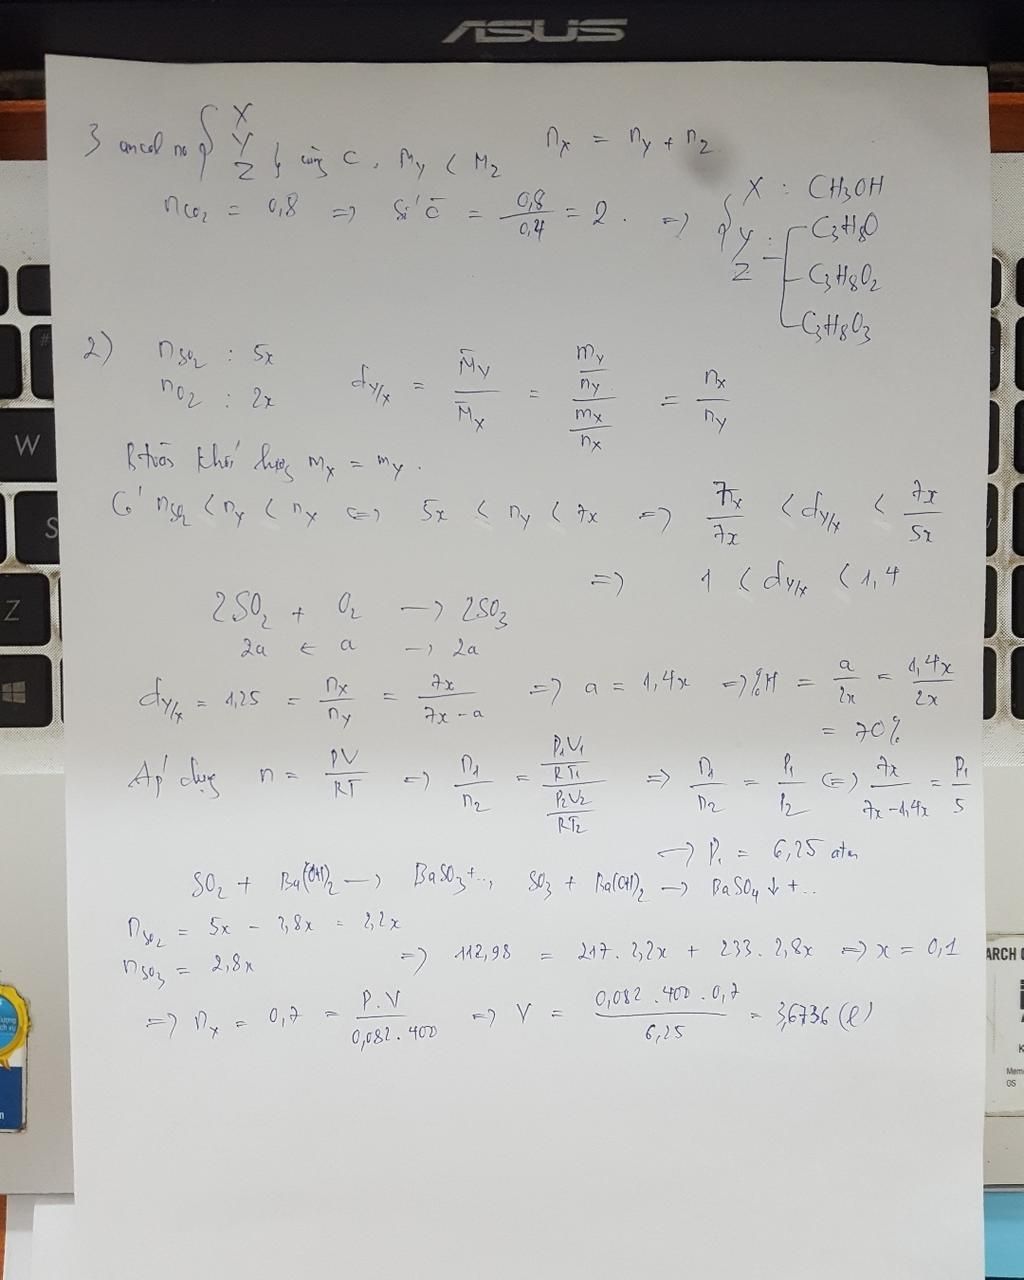 ASUS
3 ancol no { X Y Z } cùng C, M_Y < M_Z n_X = n_Y + n_Z
n_CO2 = 0,8 => Số C̄ = 0,8/0,4 = 2. => { X : CH3OH
Y: Z - C3H8O
C3H8O2
C3H8O3
2) n_SO2 : 5x
n_O2 : 2x d_Y/X = M̄_Y/M̄_X = (m_Y/n_Y)/(m_X/n_X) = n_X/n_Y
Btoàn khối lượng m_X = m_Y.
Có n_SO2 < n_Y < n_X <=> 5x < n_Y < 7x => 7x/7x < d_Y/X < 7x/5x
=> 1 < d_Y/X < 1,4
2SO2 + O2 -> 2SO3
2a <- a -> 2a
d_Y/X = 1,25 = n_X/n_Y = 7x/(7x-a) => a = 1,4x => %H = a/2x = 1,4x/2x
= 70%
Áp dụng n = PV/RT => n1/n2 = (P1V1/RT1)/(P2V2/RT2) => n1/n2 = P1/P2 (=) 7x/(7x-1,4x) = P1/5
-> P1 = 6,25 atm
SO2 + Ba(OH)2 -> BaSO3 + .., SO3 + Ba(OH)2 -> BaSO4 ↓ + ..
n_SO2 = 5x - 2,8x = 2,2x
n_SO3 = 2,8x => 112,98 = 217. 2,2x + 233. 2,8x => x = 0,1
=> n_X = 0,7 = P.V/(0,082.400) => V = (0,082.400.0,7)/6,25 = 3,6736 (l)
W
S
Z
ARCH
Mem
OS